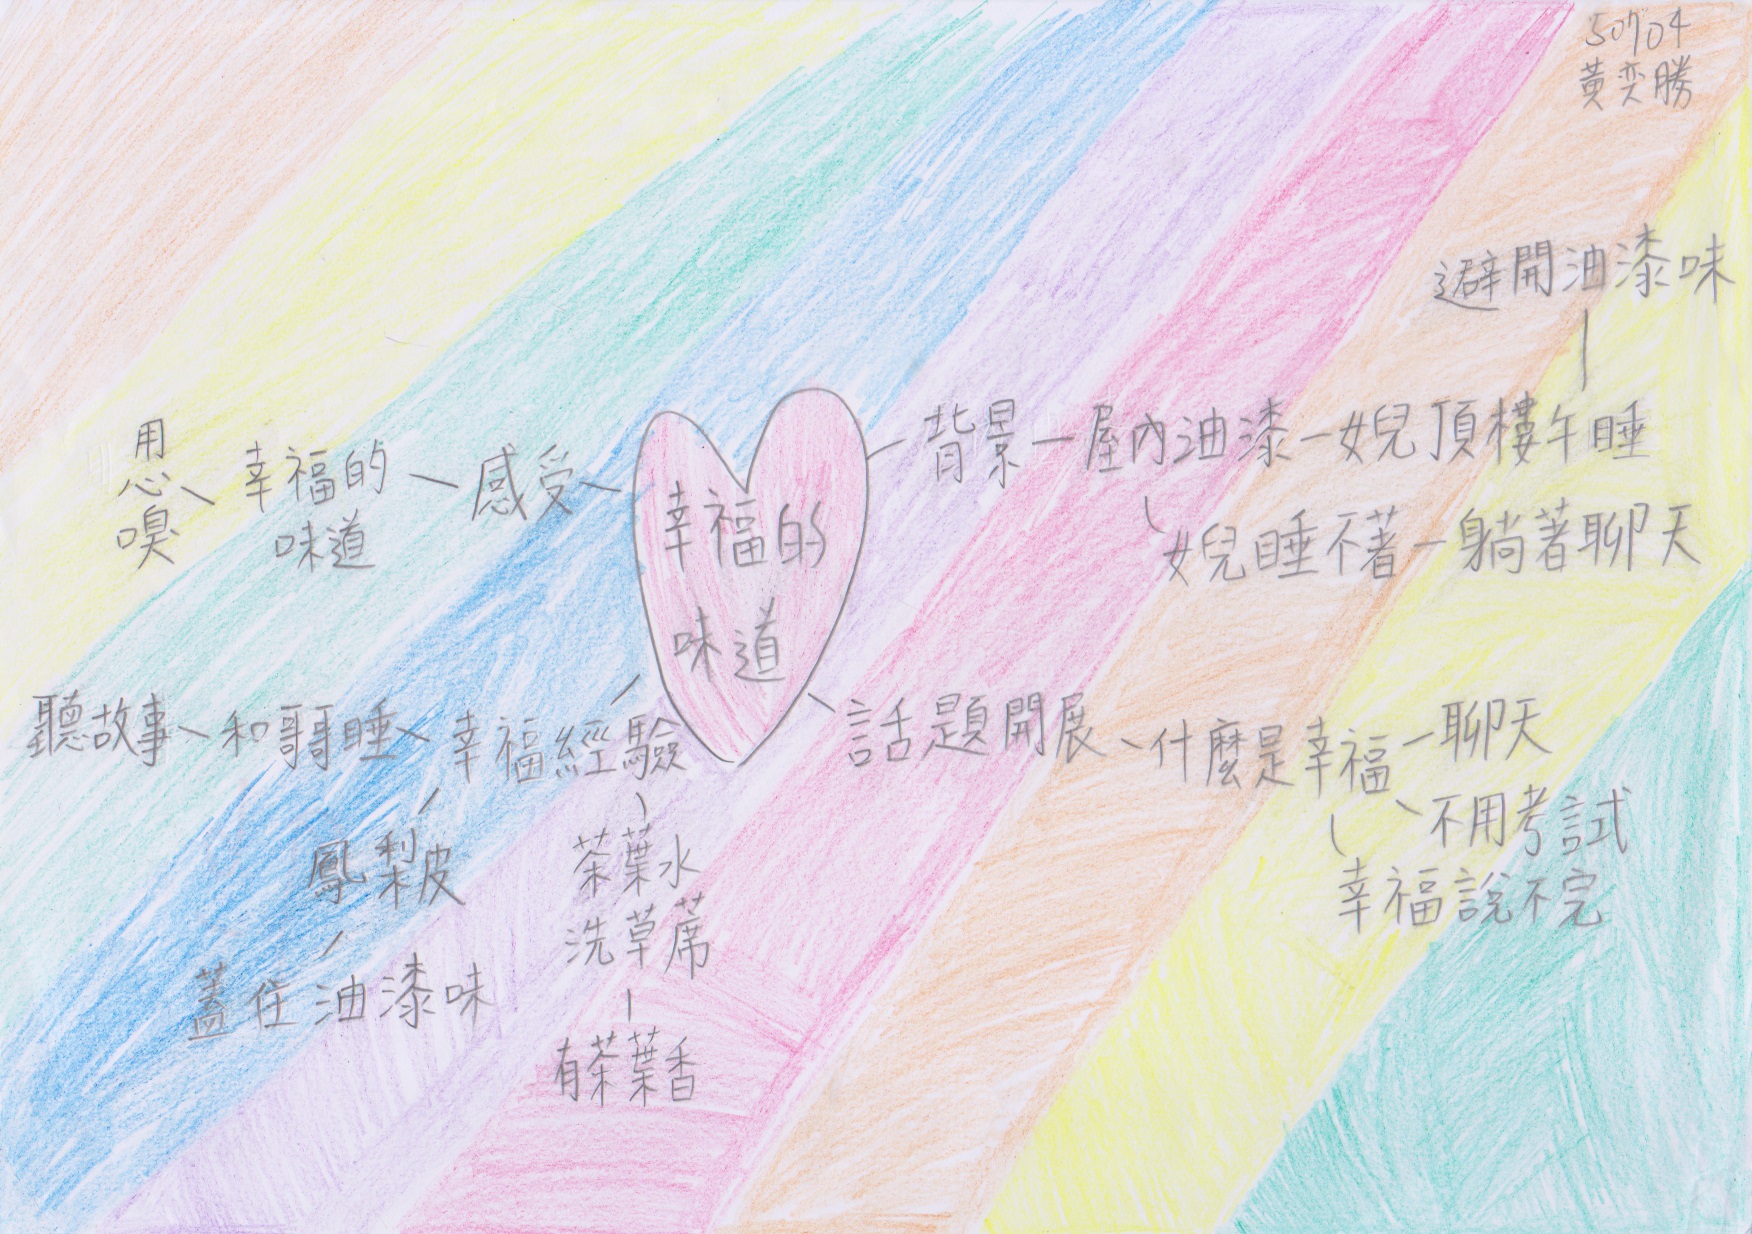 50704
黃奕勝
幸福的
味道
背景
屋內油漆
女兒頂樓午睡
避開油漆味
女兒睡不著
躺著聊天
話題開展
什麼是幸福
聊天
不用考試
幸福說不完
幸福經驗
茶葉水
洗草蓆
有茶葉香
鳳梨皮
蓋住油漆味
和哥哥睡
聽故事
感受
幸福的
味道
用
心
嗅